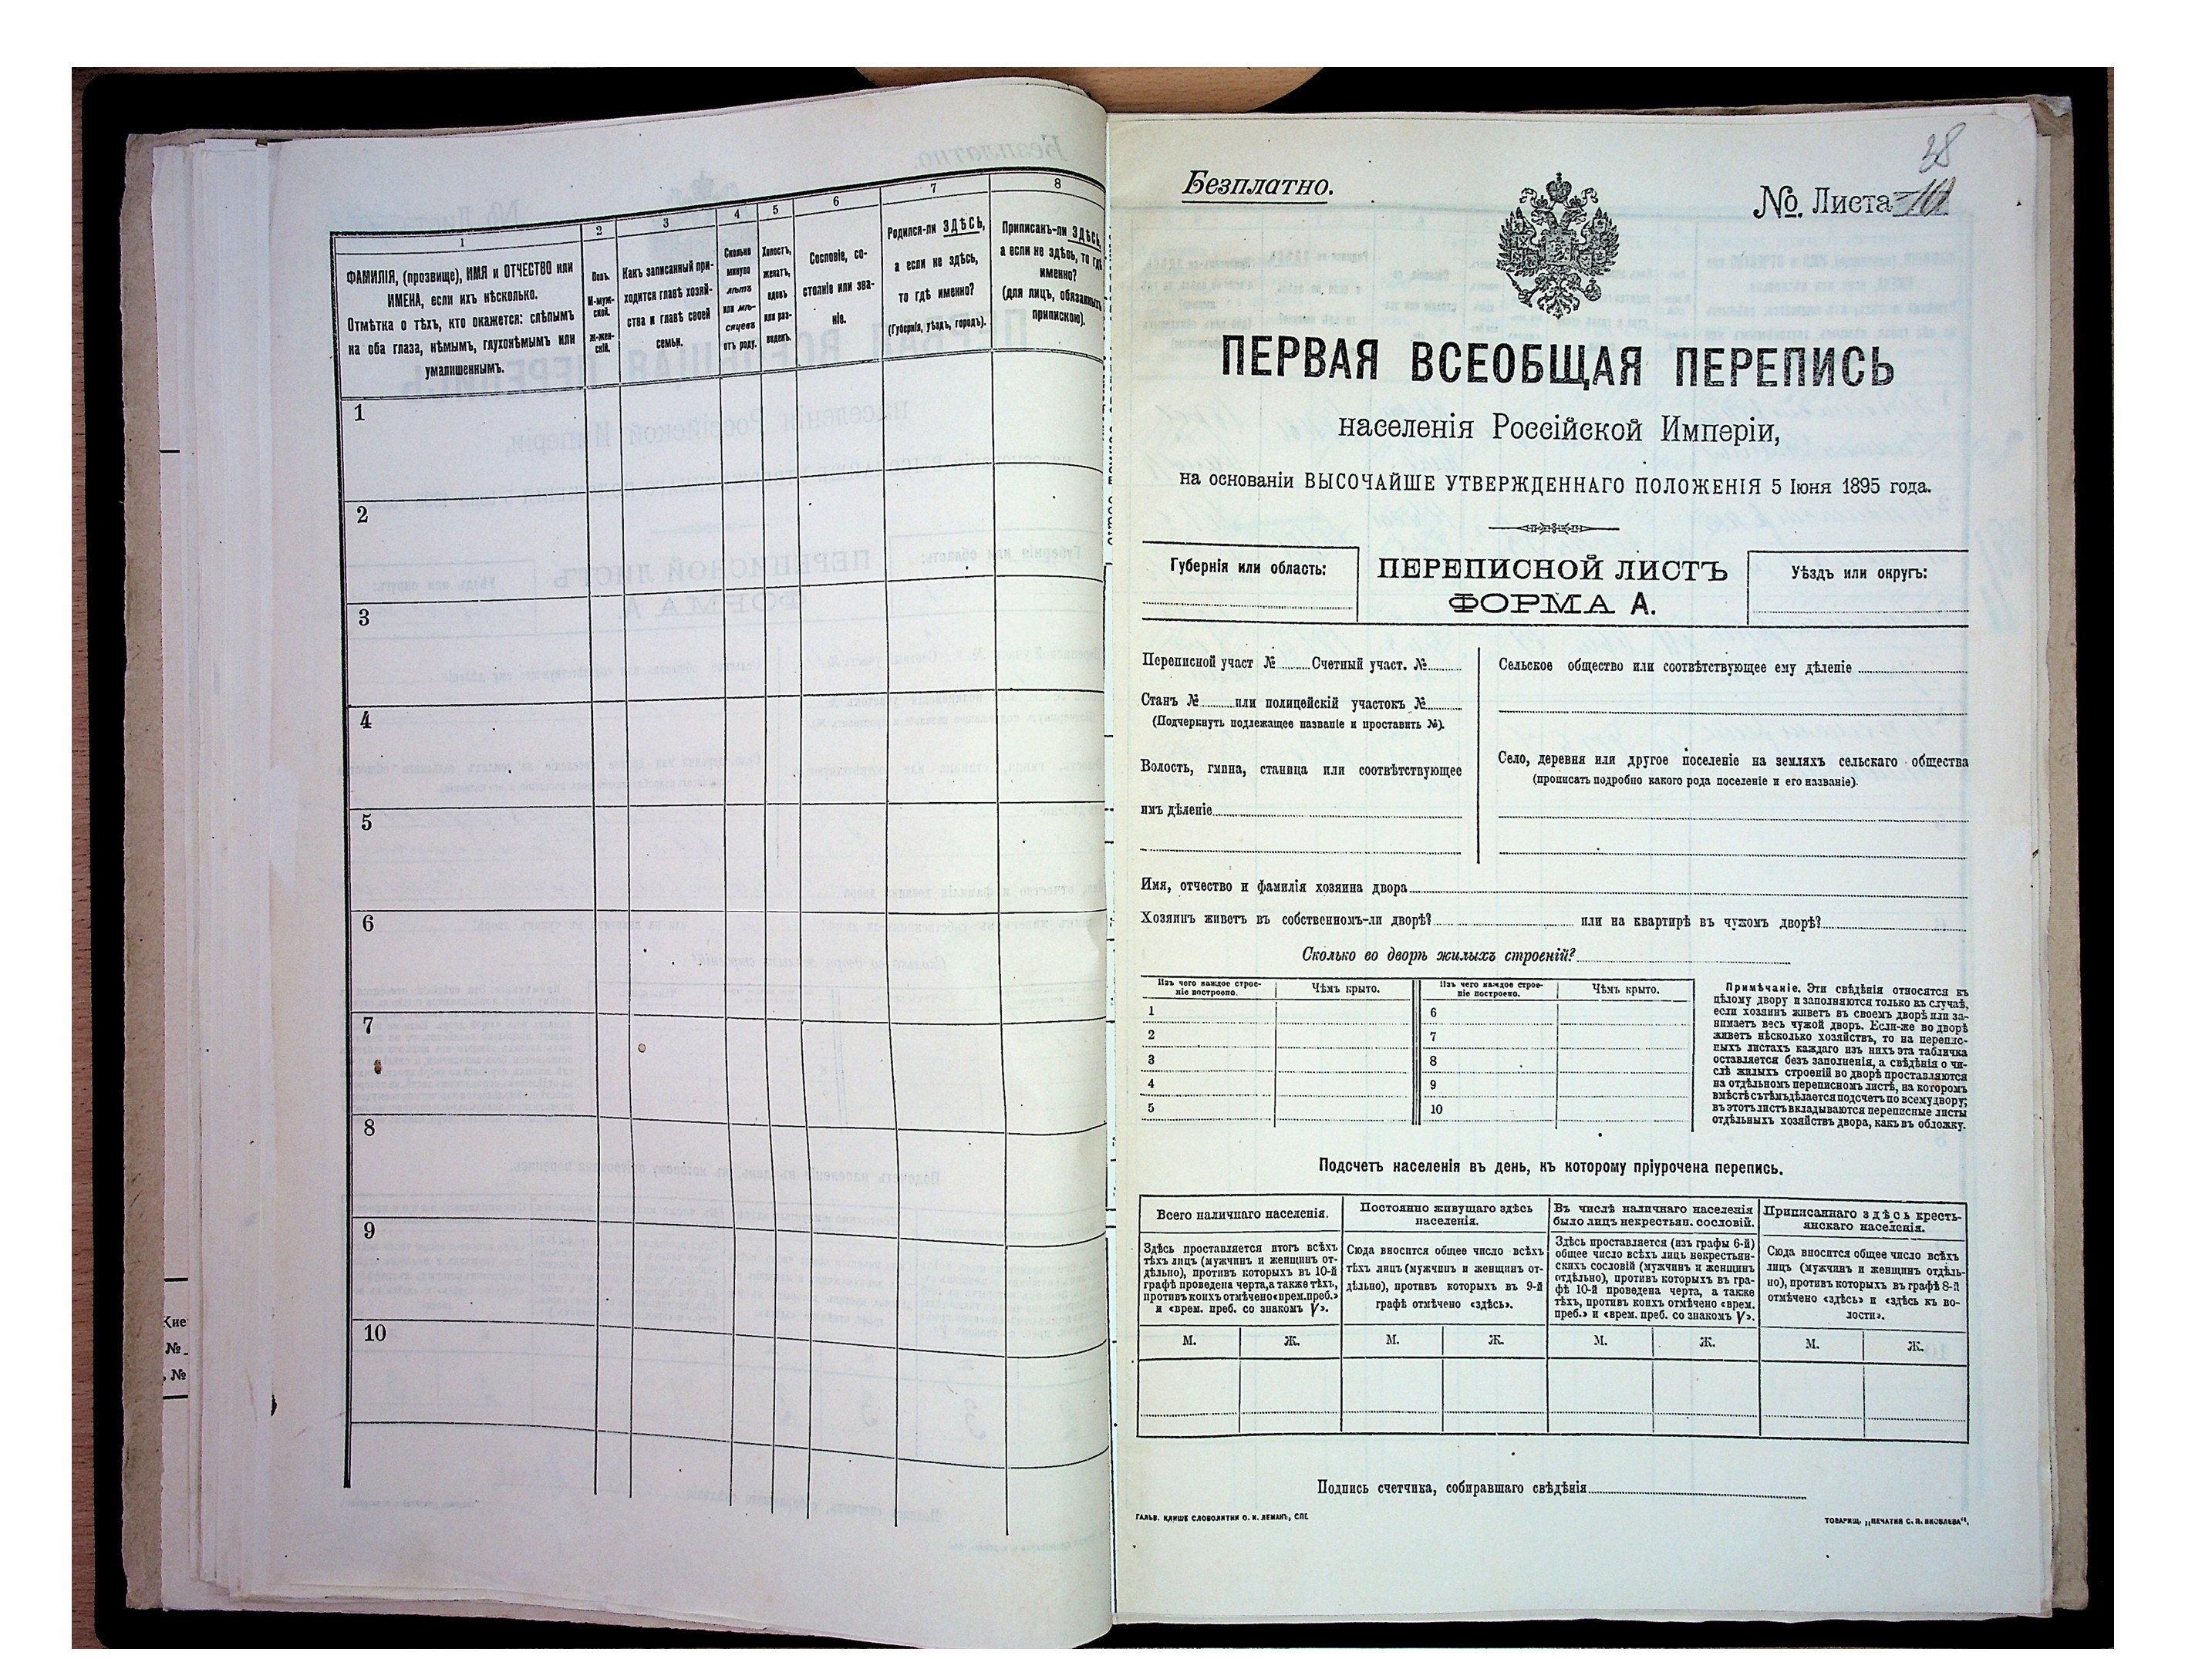 1
2
3
4
5
6
7
8
ФАМИЛІЯ, (прозвище), ИМЯ и ОТЧЕСТВО или
ИМЕНА, если ихъ нѣсколько.
Отмѣтка о тѣхъ, кто окажется: слѣпымъ
на оба глаза, нѣмымъ, глухонѣмымъ или
умалишеннымъ.
Полъ.
М-муж-
ской.
Ж-жен-
скій.
Какъ записанный при-
ходится главѣ хозяй-
ства и главѣ своей
семьи.
Сколько
минуло
лѣтъ
или мѣ-
сяцевъ
отъ роду.
Холостъ,
женатъ,
вдовъ
или раз-
веденъ.
Сословіе, со-
стояніе или зва-
ніе.
Родился-ли ЗДѢСЬ,
а если не здѣсь,
то гдѣ именно?
(Губернія, уѣздъ, городъ).
Приписанъ-ли ЗДѢСЬ,
а если не здѣсь, то гдѣ
именно?
(для лицъ, обязанныхъ
припискою).
1
2
3
4
5
6
7
8
9
10
38
Безплатно.
№. Листа
ПЕРВАЯ ВСЕОБЩАЯ ПЕРЕПИСЬ
населенія Россійской Имперіи,
на основаніи ВЫСОЧАЙШЕ УТВЕРЖДЕННАГО ПОЛОЖЕНІЯ 5 Іюня 1895 года.
Губернія или область:
ПЕРЕПИСНОЙ ЛИСТЪ
ФОРМА А.
Уѣздъ или округъ:
Переписной участ № Счетный участ. №
Станъ № или полицейскій участокъ №
(Подчеркнуть подлежащее названіе и проставить №).
Волость, гмина, станица или соотвѣтствующее
имъ дѣленіе
Сельское общество или соотвѣтствующее ему дѣленіе
Село, деревня или другое поселеніе на земляхъ сельскаго общества
(прописать подробно какого рода поселеніе и его названіе).
Имя, отчество и фамилія хозяина двора
Хозяинъ живетъ въ собственномъ-ли дворѣ? или на квартирѣ въ чужомъ дворѣ?
Сколько во дворѣ жилыхъ строеній?
Изъ чего каждое строе-
ніе построено.
Чѣмъ крыто.
Изъ чего каждое строе-
ніе построено.
Чѣмъ крыто.
1
2
3
4
5
6
7
8
9
10
Примѣчаніе. Эти свѣдѣнія относятся къ
цѣлому двору и заполняются только въ случаѣ,
если хозяинъ живетъ въ своемъ дворѣ или за-
нимаетъ весь чужой дворъ. Если-же во дворѣ
живетъ нѣсколько хозяйствъ, то на перепис-
ныхъ листахъ каждаго изъ нихъ эта табличка
оставляется безъ заполненія, а свѣдѣнія о чи-
слѣ жилыхъ строеній во дворѣ проставляются
на отдѣльномъ переписномъ листѣ, на которомъ
вмѣстѣ съ тѣмъ дѣлается подсчетъ по всему двору;
въ этотъ листъ вкладываются переписные листы
отдѣльныхъ хозяйствъ двора, какъ въ обложку.
Подсчетъ населенія въ день, къ которому пріурочена перепись.
Всего наличнаго населенія.
Здѣсь проставляется итогъ всѣхъ
тѣхъ лицъ (мужчинъ и женщинъ от-
дѣльно), противъ которыхъ въ 10-й
графѣ проведена черта, а также тѣхъ,
противъ коихъ отмѣчено «врем. преб.»
и «врем. преб. со знакомъ V».
Постоянно живущаго здѣсь
населенія.
Сюда вносится общее число всѣхъ
тѣхъ лицъ (мужчинъ и женщинъ от-
дѣльно), противъ которыхъ въ 9-й
графѣ отмѣчено «здѣсь».
Въ числѣ наличнаго населенія
было лицъ некрестьян. сословій.
Здѣсь проставляется (изъ графы 6-й)
общее число всѣхъ лицъ некрестьян-
скихъ сословій (мужчинъ и женщинъ
отдѣльно), противъ которыхъ въ гра-
фѣ 10-й проведена черта, а также
тѣхъ, противъ коихъ отмѣчено «врем.
преб.» и «врем. преб. со знакомъ V».
Приписаннаго здѣсь кресть-
янскаго населенія.
Сюда вносится общее число всѣхъ
лицъ (мужчинъ и женщинъ отдѣль-
но), противъ которыхъ въ графѣ 8-й
отмѣчено «здѣсь» и «здѣсь въ во-
лости».
М. Ж. М. Ж. М. Ж. М. Ж.
Подпись счетчика, собиравшаго свѣдѣнія
ГАЛЬВ. КЛИШЕ СЛОВОЛИТНИ О. И. ЛЕМАНЪ, СПБ.
ТОВАРИЩ. „ПЕЧАТНИ С. П. ЯКОВЛЕВА".